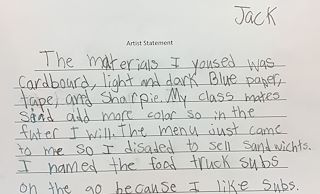 Jack
Artist Statement
The materials I yoused was
cardbourd, light and dark Blue paper,
tape, and Sharpie. My class mates
said add more color so in the
futer I will. The menu Just came
to me so I disaded to sell Sandwichts.
I named the food truck subs
on the go because I like subs.